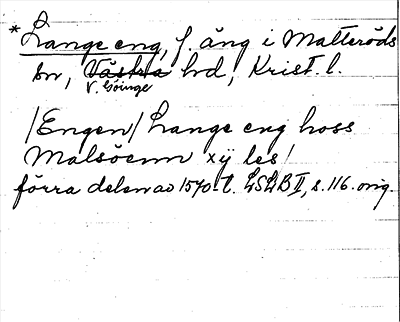 *Lange eng, f. äng i Matteröds
sn, Västra hd, Krist. l.
V. Göinge
/Engen/ Lange eng hoss
Malsöenn xÿ les/
förra delen av 1570-t. LSLB II, s. 116. orig.